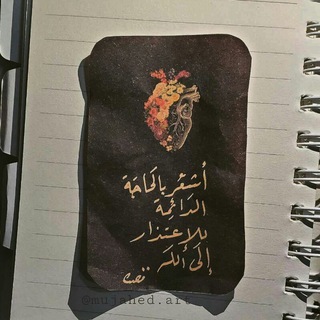 أشعر بالحاجة
الدائمة
للاعتذار
إلى الله..
@mujahed.art